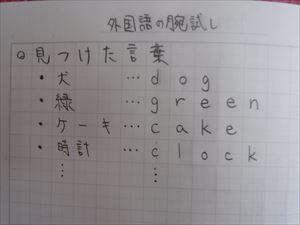 外国語の腕試し
◎見つけた言葉
・犬 …dog
・緑 …green
・ケーキ…cake
・時計 …clock
⋮ ⋮